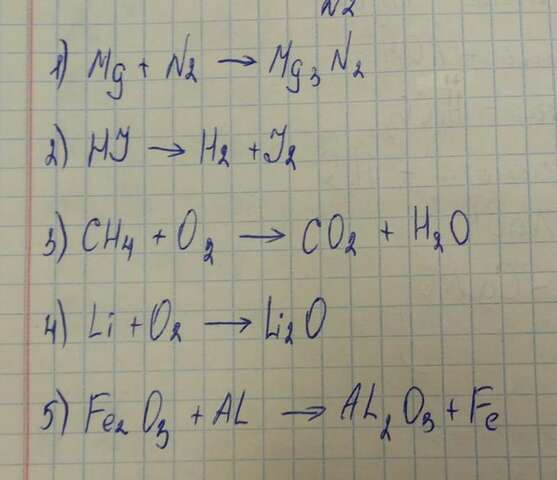 N2
1) Mg + N2 → Mg3 N2
2) HJ → H2 + J2
3) CH4 + O2 → CO2 + H2O
4) Li + O2 → Li2O
5) Fe2 O3 + AL → AL2 O3 + Fe